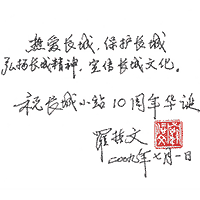 热爱长城，保护长城
弘扬长城精神，宣传长城文化。
祝长城小站10周年华诞
罗哲文
二〇〇九年七月一日